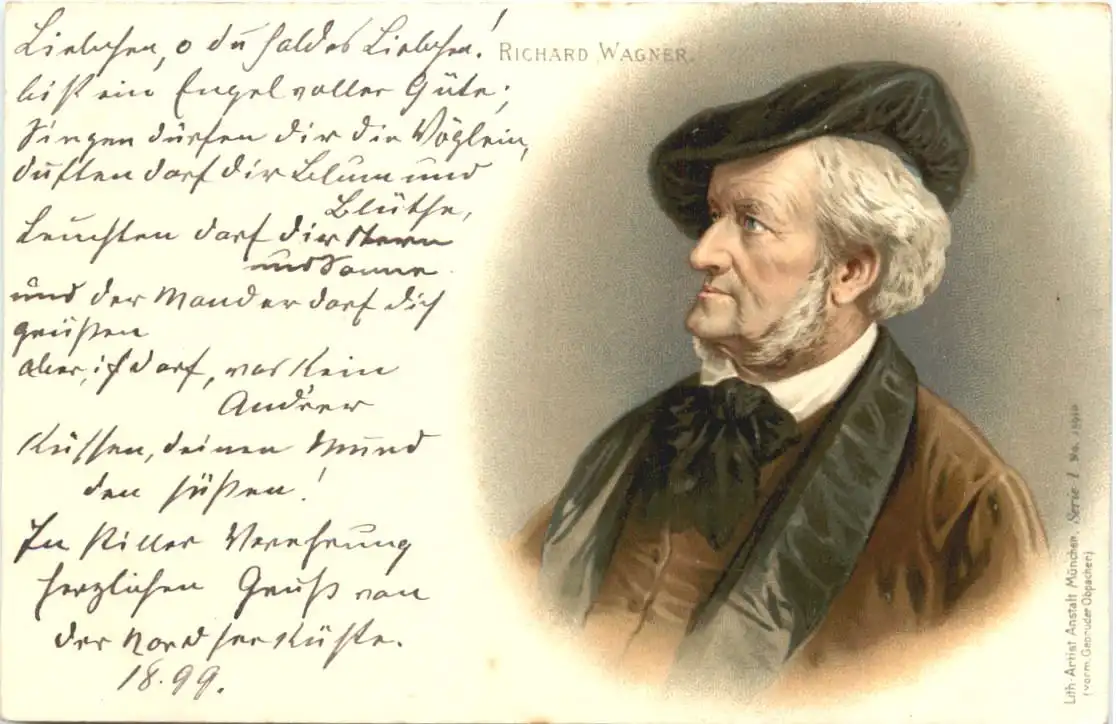 Liebchen, o du holdes Liebchen!
bist ein Engel voller Güte;
Singen dürfen dir die Vöglein,
duften darf dir Blum und
Blüthe,
Leuchten darf dir Stern
und Sonne
und der Mond er darf dich
grüßen
aber, ich darf, was kein
Andrer
Küssen, deinen Mund
den süßen!
In stiller Verehrung
herzlichen Gruß von
der Nordseeküste.
18.99.
RICHARD WAGNER.
Lith.-Artist Anstalt München, Serie I No.
(vorm. Gebrüder Obpacher)